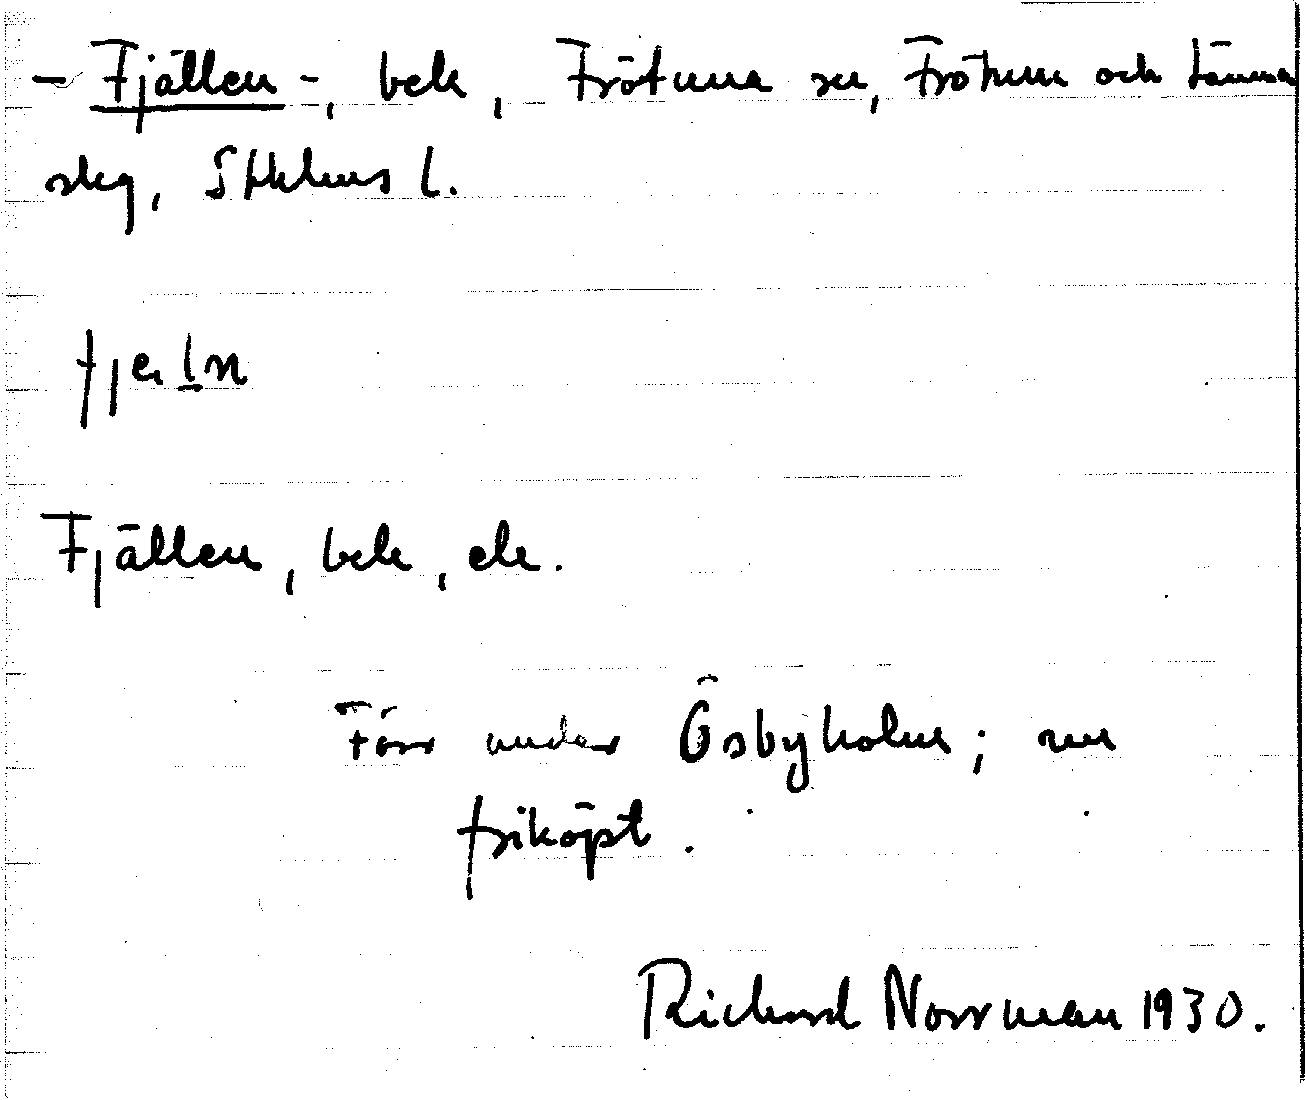 - Fjällen -, bek, Frötuna sn, Frötuna och Länna
slg, Sthlms l.
fjäln
Fjällen, bek, ek.
Förr under Ösbyholm; nu
friköpt.
Richard Norrman 1930.